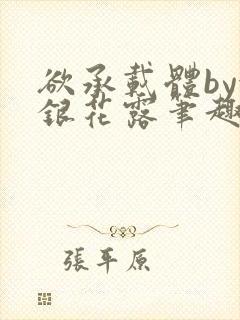 欲承載體by
銀花露筆趣
張平原